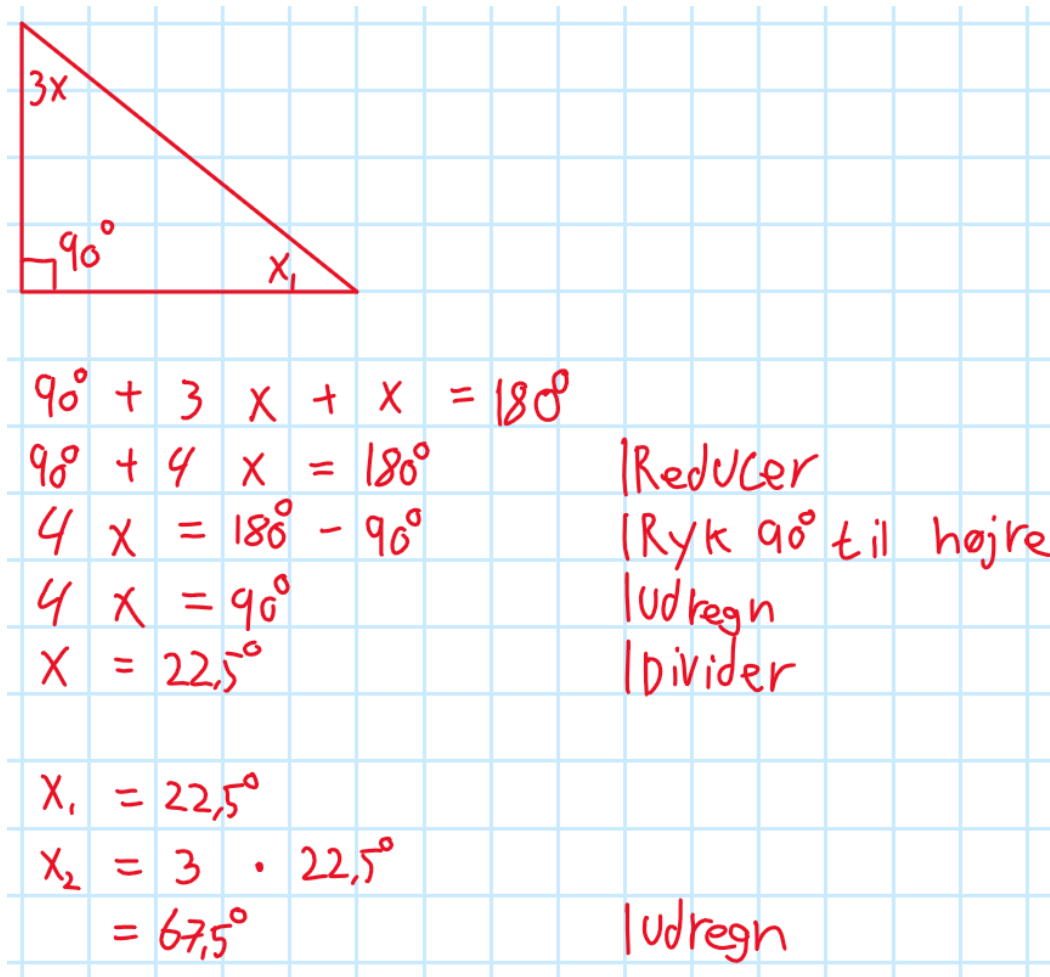 3x
90°
x₁
90° + 3 x + x = 180°
90° + 4 x = 180° |Reducer
4 x = 180° - 90° |Ryk 90° til højre
4 x = 90° |udregn
x = 22,5° |Divider
x₁ = 22,5°
x₂ = 3 · 22,5°
= 67,5° |udregn